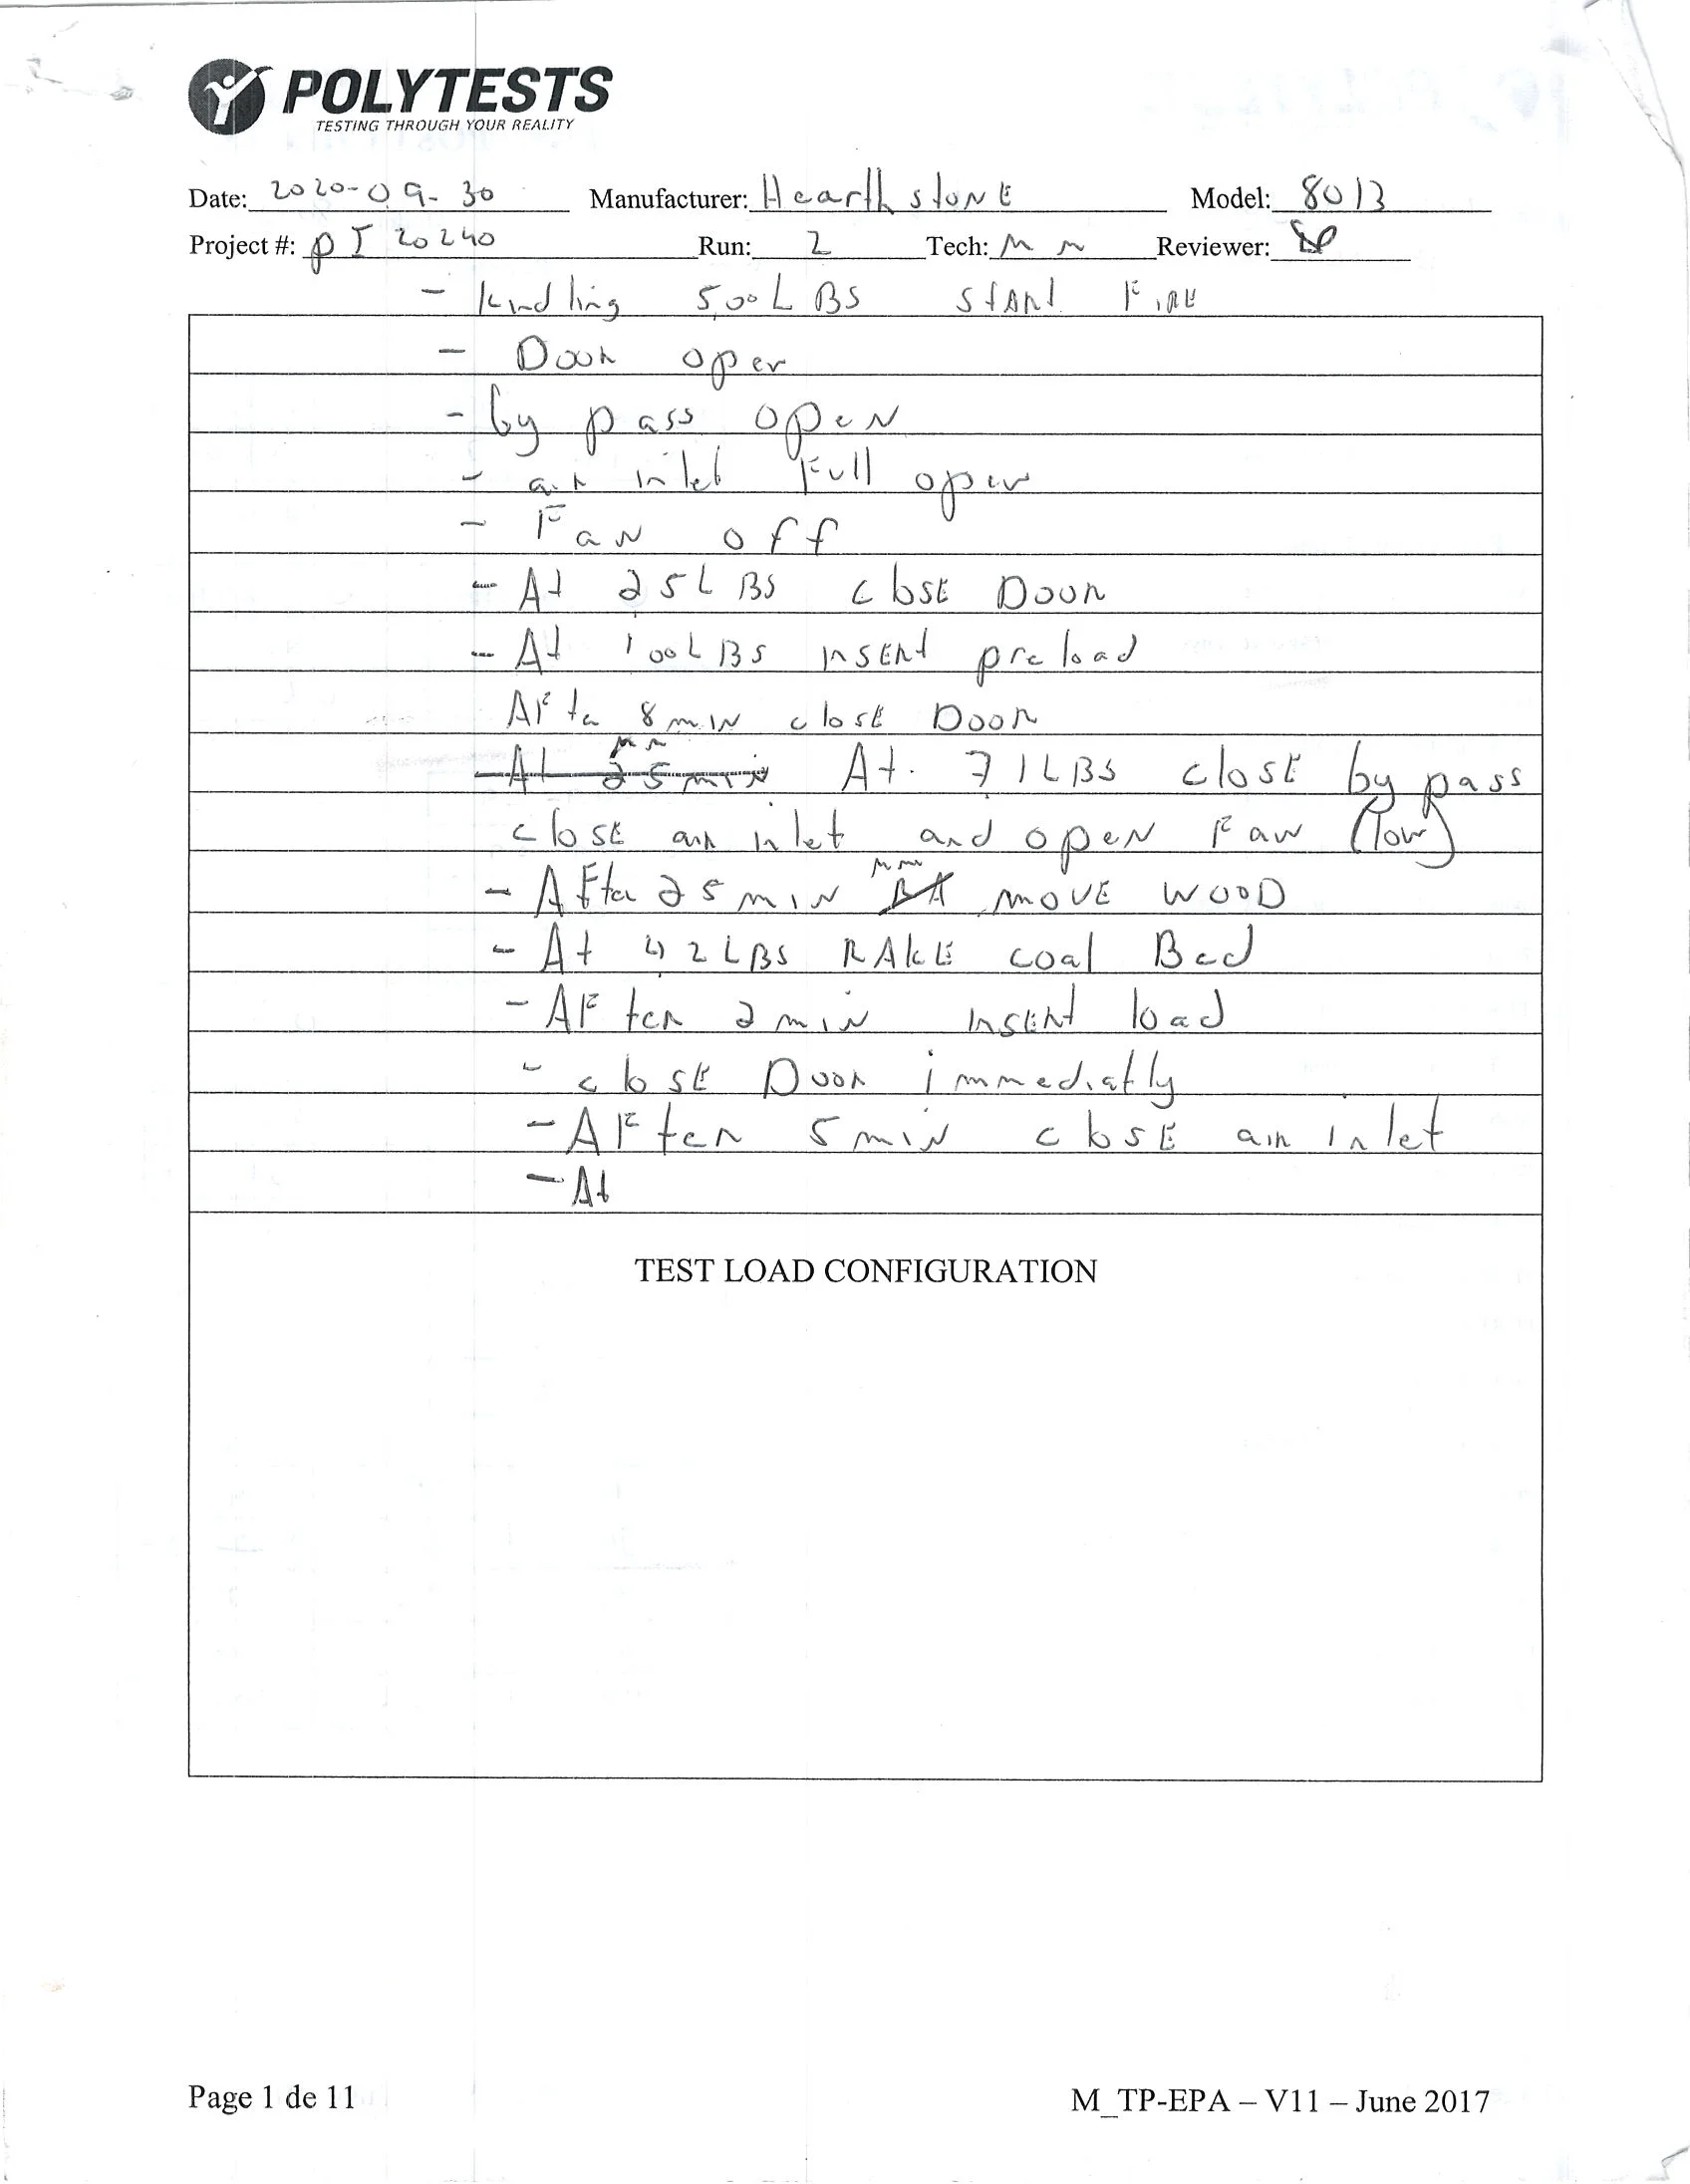 POLYTESTS
TESTING THROUGH YOUR REALITY
Date: 2020-09-30 Manufacturer: HearthstonE Model: 8013
Project #: PI 20240 Run: 2 Tech: MM Reviewer:
- kindling 5,00 LBS StARt FiRE
- Door open
- by pass open
- air inlet Full open
- Fan off
- At 25 LBS closE Door
- At 100 LBS insERt preload
AFter 8 min closE Door
At 25 min At. 71 LBS closE by pass
closE air inlet and open Fan (low)
- AFter 25 min movE wooD
- At 42 LBS RAkE coal Bed
- AFter 2 min insERt load
- closE Door immediatly
- AFter 5 min closE air inlet
- At
TEST LOAD CONFIGURATION
Page 1 de 11 M_TP-EPA – V11 – June 2017